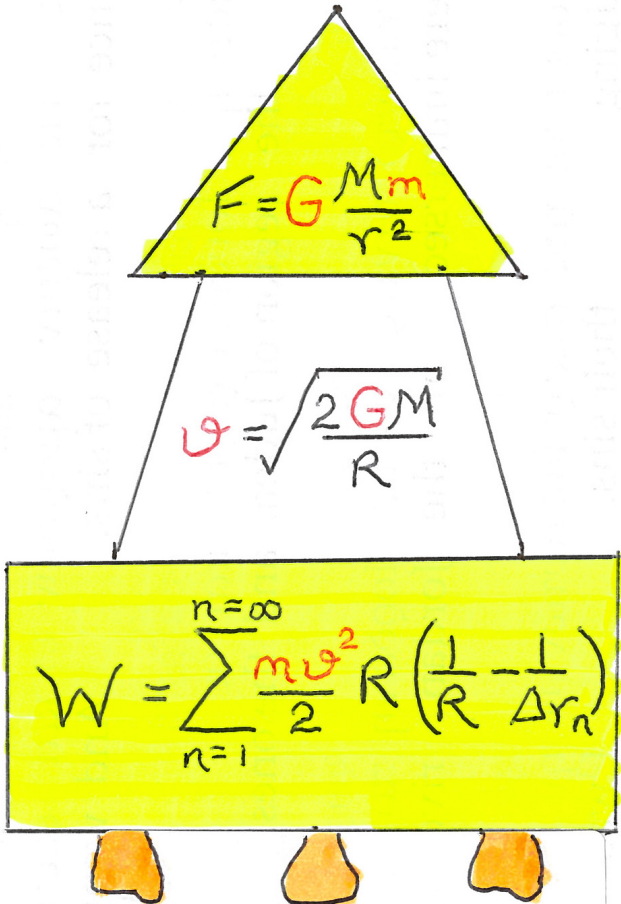 F = G Mm / r²
ϑ = √(2GM / R)
W = ∑ n=∞ n=1 mϑ² / 2 R (1/R - 1/Δrₙ)